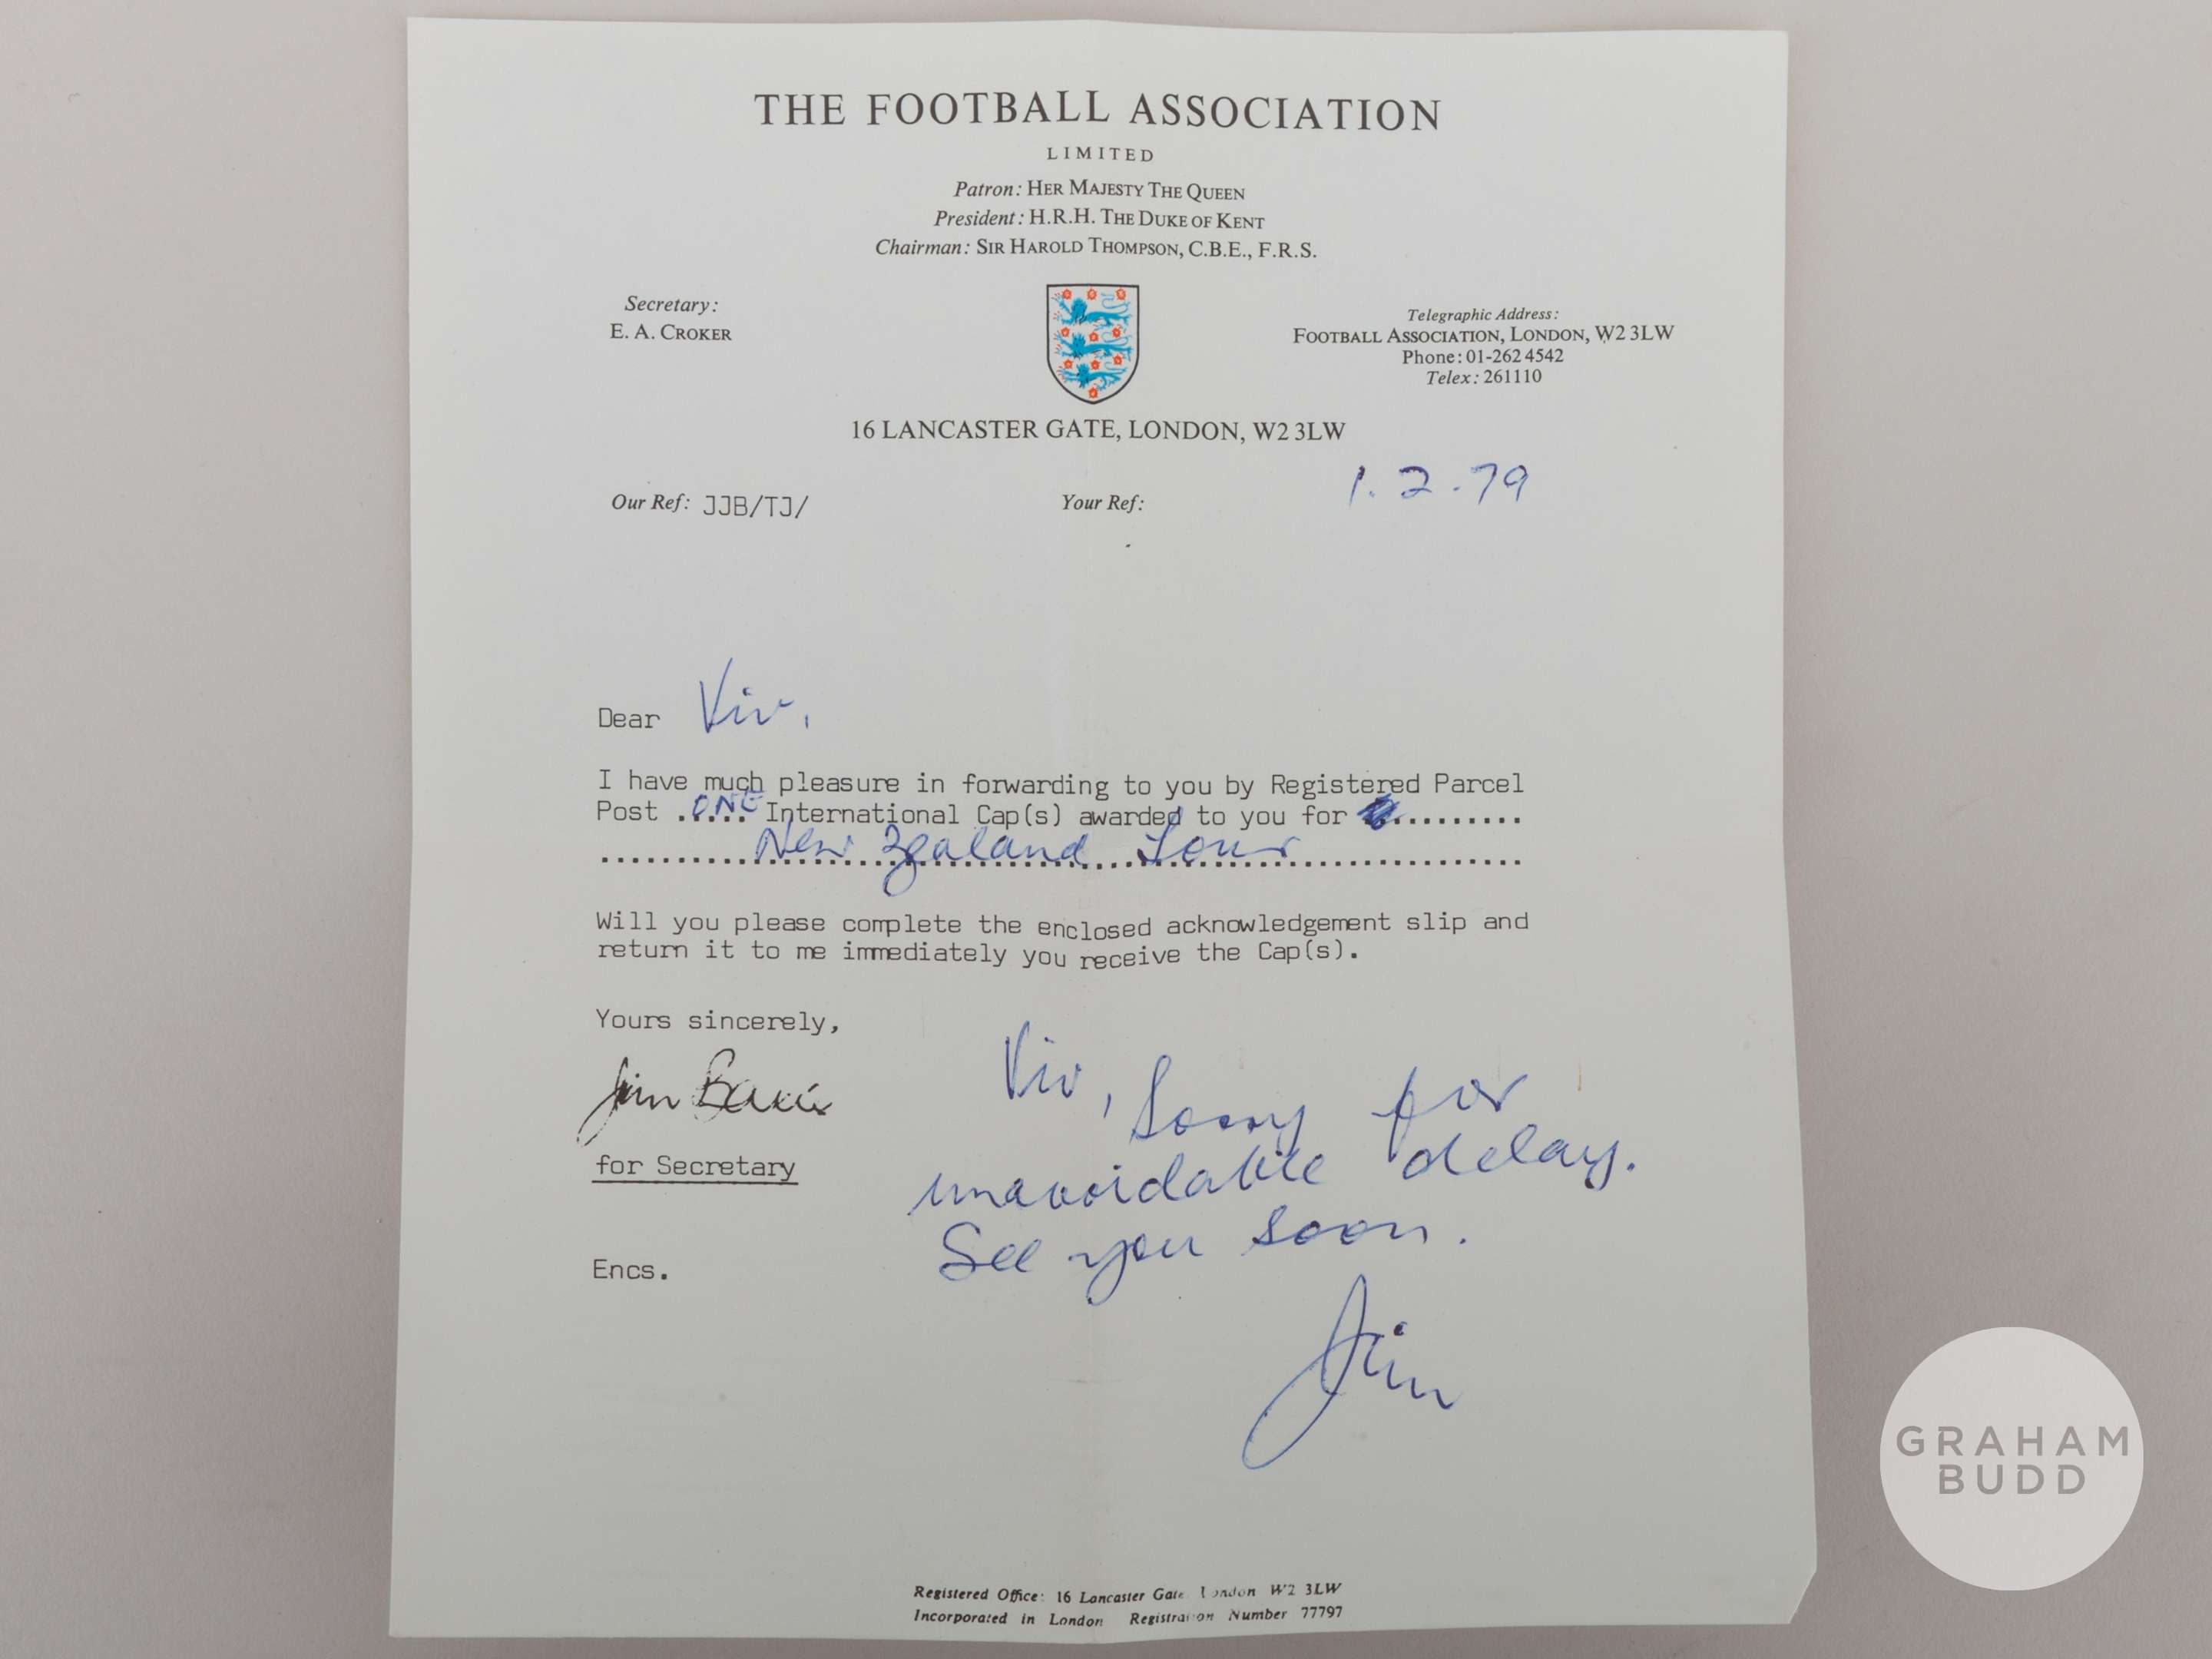 THE FOOTBALL ASSOCIATION
LIMITED
Patron: HER MAJESTY THE QUEEN
President: H.R.H. THE DUKE OF KENT
Chairman: SIR HAROLD THOMPSON, C.B.E., F.R.S.
Secretary:
E. A. CROKER
Telegraphic Address:
FOOTBALL ASSOCIATION, LONDON, W2 3LW
Phone: 01-262 4542
Telex: 261110
16 LANCASTER GATE, LONDON, W2 3LW
1.2.79
Our Ref: JJB/TJ/
Your Ref:
Dear Viv,
I have much pleasure in forwarding to you by Registered Parcel
Post ONE International Cap(s) awarded to you for ..........
New Zealand Tour
Will you please complete the enclosed acknowledgement slip and
return it to me immediately you receive the Cap(s).
Yours sincerely,
Jim
for Secretary
Encs.
Viv, Sorry for
unavoidable delay.
See you soon.
Jim
Registered Office: 16 Lancaster Gate London W2 3LW
Incorporated in London Registration Number 77797
GRAHAM
BUDD